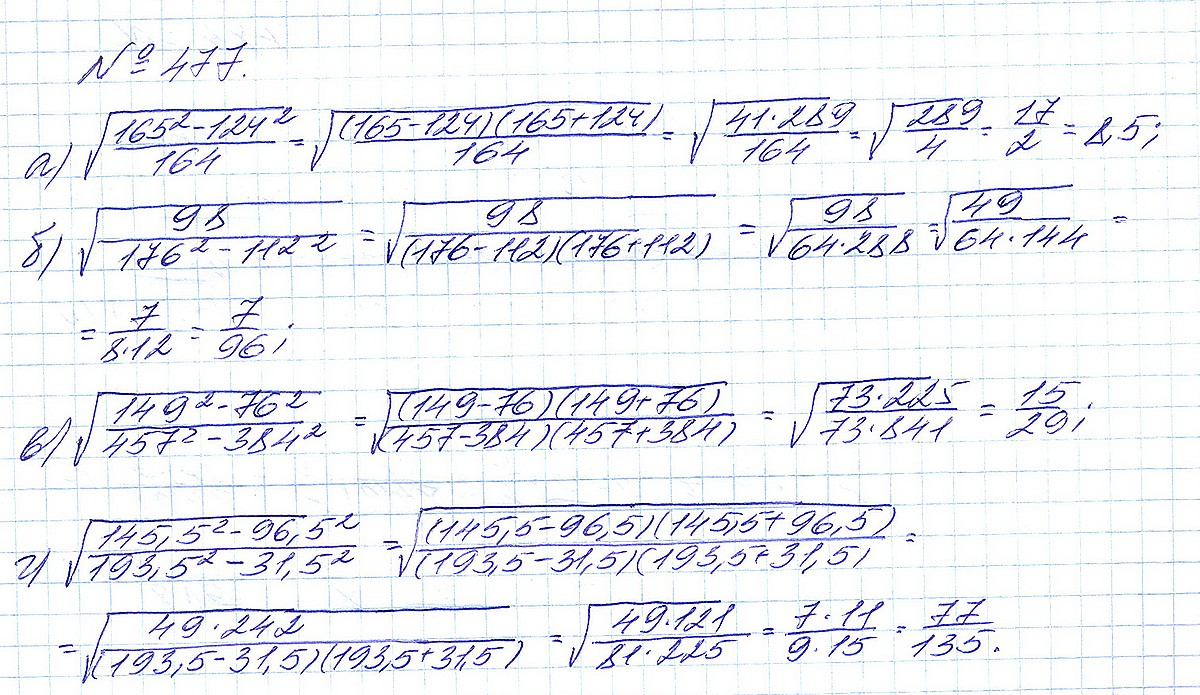 № 477.
а) √((165² - 124²)/164) = √((165-124)(165+124)/164) = √(41·289/164) = √(289/4) = 17/2 = 8,5;
б) √(98/(176² - 112²)) = √(98/((176-112)(176+112))) = √(98/(64·288)) = √(49/(64·144)) =
= 7/(8·12) = 7/96;
в) √((149² - 76²)/(457² - 384²)) = √((149-76)(149+76)/((457-384)(457+384))) = √(73·225/(73·841)) = 15/29;
г) √((145,5² - 96,5²)/(193,5² - 31,5²)) = √((145,5-96,5)(145,5+96,5)/((193,5-31,5)(193,5+31,5))) =
= √(49·242/((193,5-31,5)(193,5+31,5))) = √(49·121/(81·225)) = 7·11/(9·15) = 77/135.